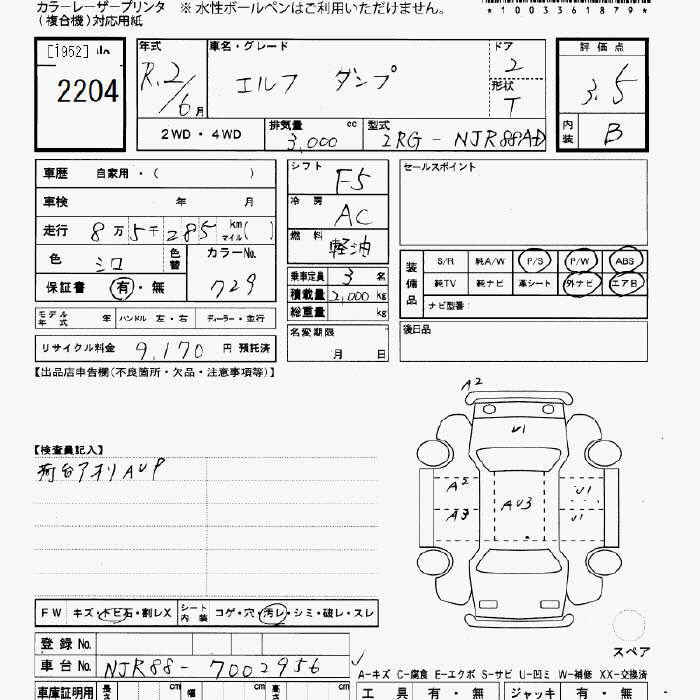 カラーレーザープリンタ ※ 水性ボールペンはご利用いただけません。
(複合機)対応用紙
*1003361879*
[1952]
2204
年式
R.2/6月
車名・グレード
エルフ ダンプ
ドア
2
形状
T
評価点
3.5
内装
B
2WD・4WD
排気量 cc
3,000
型式
2RG-NJR88AD
車歴 自家用・( )
車検 年 月
走行 8万5千285 km マイル( )
色
シロ
色替
カラーNo.
729
保証書 有・無
モデル年式 年
ハンドル 左・右
ディーラー・並行
リサイクル料金 9,170 円 預託済
シフト
F5
冷房
AC
燃料
軽油
乗車定員 3 名
積載量 2,000 kg
総重量 kg
名変期限
月 日
セールスポイント
装備品
S/R 純A/W P/S P/W ABS
純TV 純ナビ 革シート 外ナビ エアB
ナビ型番:
後日品
【出品店申告欄(不良箇所・欠品・注意事項等)】
【検査員記入】
荷台アオリAUP
A2
U1
A2
A3
AU3
U1
U1
スペア
FW キズ・トビ石・割レX
シート内装 コゲ・穴・汚レ・シミ・破レ・スレ
登録 No.
車台 No. NJR88-7002956
A-キズ C-腐食 E-エクボ S-サビ U-凹ミ W-補修 XX-交換済
車庫証明用 長さ cm 幅 cm 高さ cm
工具 有・無 ジャッキ 有・無